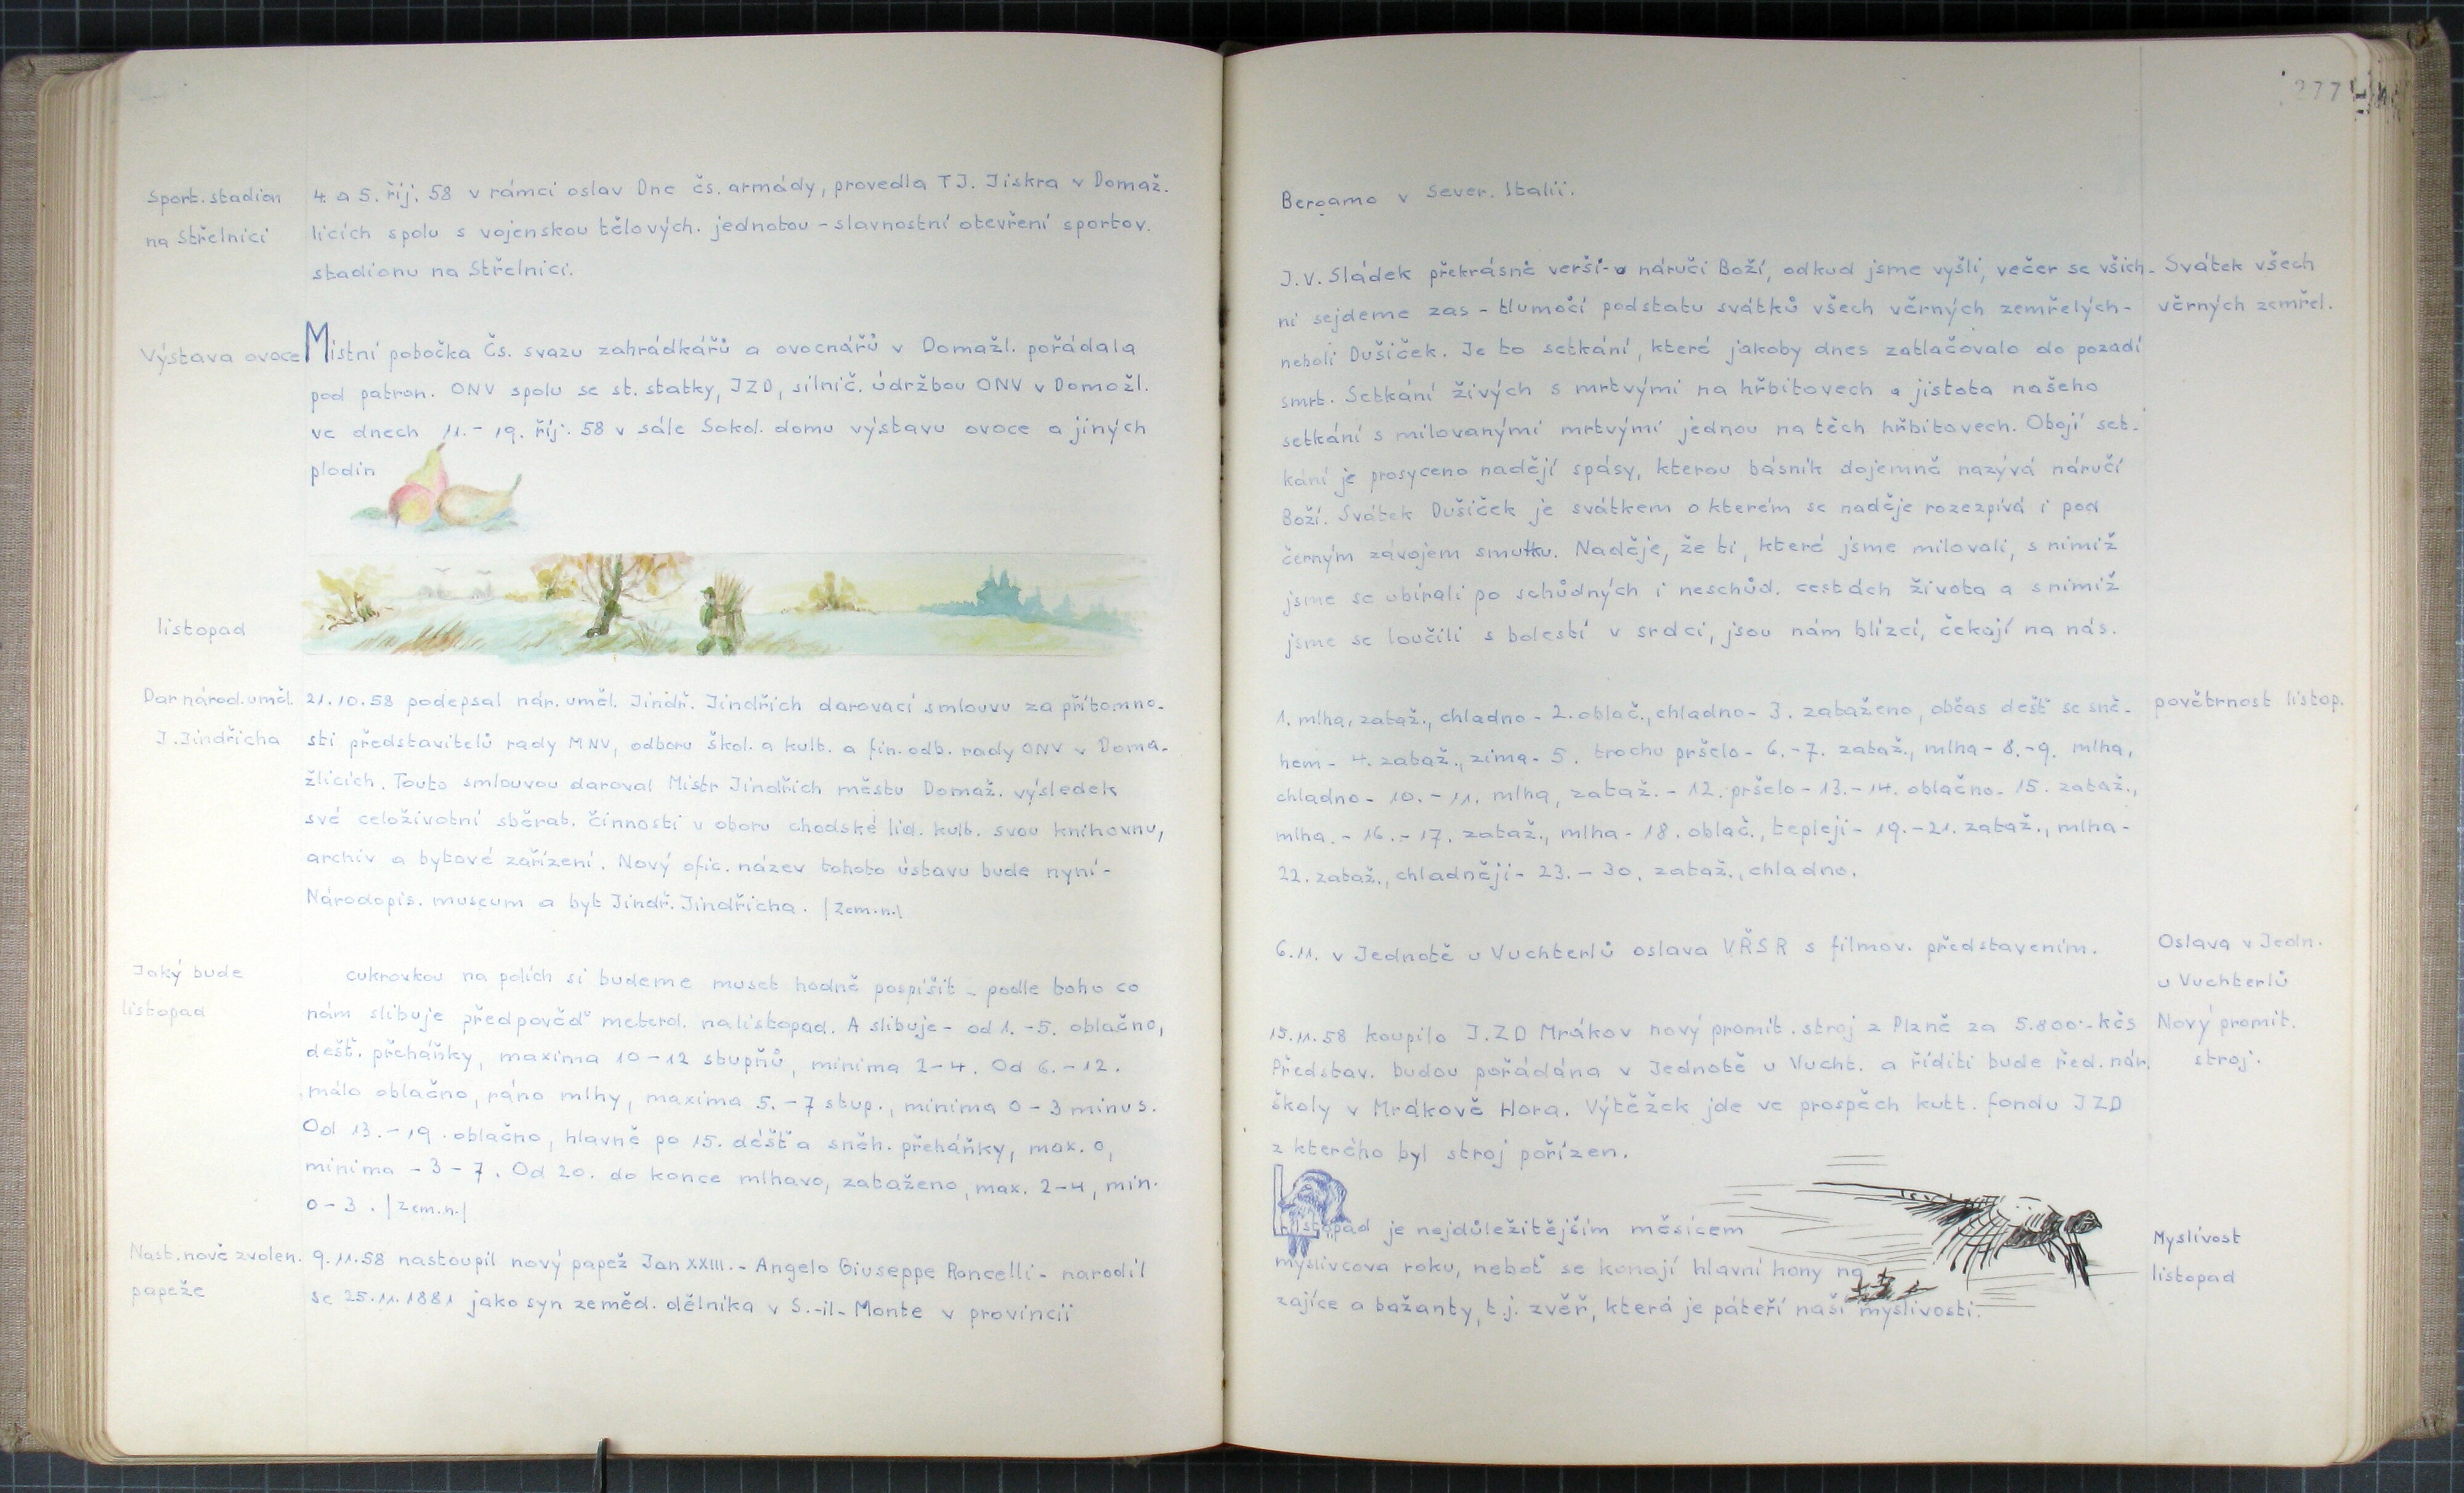 Sport. stadion
na Střelnici
4. a 5. říj. 58 v rámci oslav Dne čs. armády, provedla TJ. Jiskra v Domaž.
licích spolu s vojenskou tělových. jednotou - slavnostní otevření sportov.
stadionu na Střelnici.
Výstava ovoce
Místní pobočka Čs. svazu zahrádkářů a ovocnářů v Domažl. pořádala
pod patron. ONV spolu se st. statky, JZD, silnič. údržbou ONV v Domažl.
ve dnech 11. - 19. říj. 58 v sále Sokol. domu výstavu ovoce a jiných
plodin
listopad
Dar národ. uměl.
J. Jindřicha
21.10.58 podepsal nár. uměl. Jindř. Jindřich darovací smlouvu za přítomno-
sti představitelů rady MNV, odboru škol. a kult. a fin. odb. rady ONV v Doma-
žlicích. Touto smlouvou daroval Mistr Jindřich městu Domaž. výsledek
své celoživotní sběrat. činnosti v oboru chodské lid. kult. svou knihovnu,
archiv a bytové zařízení. Nový ofic. název tohoto ústavu bude nyní -
Národopis. museum a byt Jindř. Jindřicha. /Zem.n./
Jaký bude
listopad
cukrovkou na polích si budeme muset hodně pospíšit - podle toho co
nám slibuje předpověď meterol. na listopad. A slibuje - od 1. - 5. oblačno,
dešť. přeháňky, maxima 10 - 12 stupňů, minima 2 - 4. Od 6. - 12.
málo oblačno, ráno mlhy, maxima 5. - 7 stup., minima 0 - 3 minus.
Od 13. - 19. oblačno, hlavně po 15. déšť a sněh. přeháňky, max. 0,
minima - 3 - 7. Od 20. do konce mlhavo, zataženo, max. 2 - 4, min.
0 - 3. /Zem.n./
Nast. nově zvolen.
papeže
9.11.58 nastoupil nový papež Jan XXIII. - Angelo Giuseppe Roncelli - narodil
se 25.11.1881 jako syn zeměd. dělníka v S. -il- Monte v provincii
277
Bergamo v Sever. Italii.
J. V. Sládek překrásně verši - v náručí Boží, odkud jsme vyšli, večer se všich-
ni sejdeme zas - tlumočí podstatu svátků všech věrných zemřelých -
neboli Dušiček. Je to setkání, které jakoby dnes zatlačovalo do pozadí
smrt. Setkání živých s mrtvými na hřbitovech a jistota našeho
setkání s milovanými mrtvými jednou na těch hřbitovech. Obojí set-
kání je prosyceno nadějí spásy, kterou básník dojemně nazývá náručí
Boží. Svátek Dušiček je svátkem o kterém se naděje rozezpívá i pod
černým závojem smutku. Naděje, že ti, které jsme milovali, s nimiž
jsme se ubírali po schůdných i neschůd. cestách života a s nimiž
jsme se loučili s bolestí v srdci, jsou nám blízcí, čekají na nás.
Svátek všech
věrných zemřel.
1. mlha, zataž., chladno - 2. oblač., chladno - 3. zataženo, občas dešť se sně-
hem - 4. zataž., zima - 5. trochu pršelo - 6. - 7. zataž., mlha - 8. - 9. mlha,
chladno - 10. - 11. mlha, zataž. - 12. pršelo - 13. - 14. oblačno - 15. zataž.,
mlha. - 16. - 17. zataž., mlha - 18. oblač., tepleji - 19. - 21. zataž., mlha -
22. zataž., chladněji - 23. - 30. zataž., chladno.
povětrnost listop.
6.11. v Jednotě u Vuchterlů oslava VŘSR s filmov. představením.
Oslava v Jedn.
u Vuchterlů
15.11.58 koupilo J.ZD Mrákov nový promit. stroj z Plzně za 5.800.- kčs
Představ. budou pořádána v Jednotě u Vucht. a říditi bude řed. nár.
školy v Mrákově Hora. Výtěžek jde ve prospěch kult. fondu JZD
z kterého byl stroj pořízen.
Nový promit.
stroj.
Listopad je nejdůležitějším měsícem
myslivcova roku, neboť se konají hlavní hony na
zajíce a bažanty, t.j. zvěř, která je páteří naší myslivosti.
Myslivost
listopad